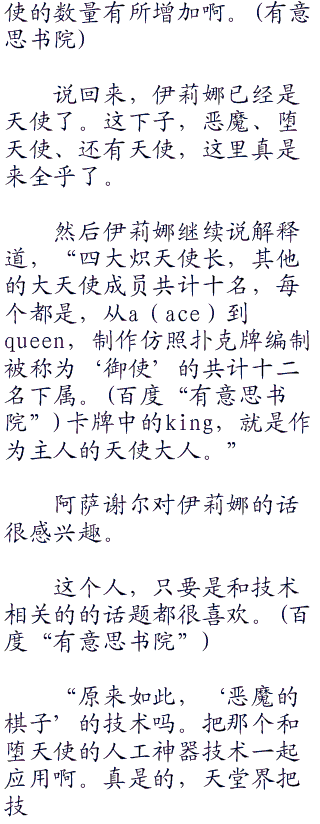 使的数量有所增加啊。(有意
思书院)
说回来，伊莉娜已经是
天使了。这下子，恶魔、堕
天使、还有天使，这里真是
来全乎了。
然后伊莉娜继续说解释
道，“四大炽天使长，其他
的大天使成员共计十名，每
个都是，从a（ace）到
queen，制作仿照扑克牌编制
被称为‘御使’的共计十二
名下属。(百度“有意思书
院”)卡牌中的king，就是作
为主人的天使大人。”
阿萨谢尔对伊莉娜的话
很感兴趣。
这个人，只要是和技术
相关的的话题都很喜欢。(百
度“有意思书院”)
“原来如此，‘恶魔的
棋子’的技术吗。把那个和
堕天使的人工神器技术一起
应用啊。真是的，天堂界把
技